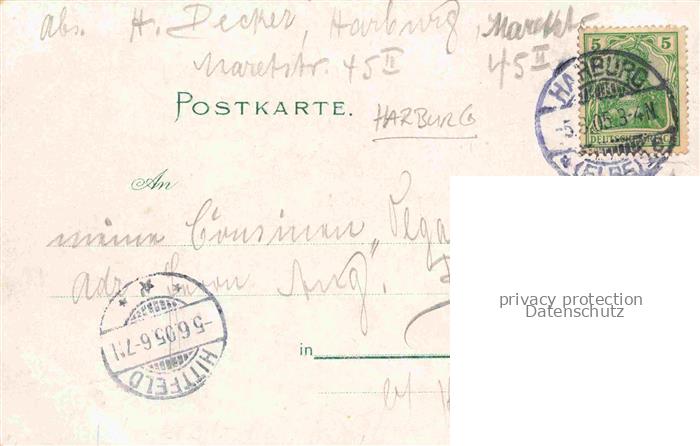 abs. H. Decker, Harburg, Maretstr.
Maretstr. 45 II 45 II
POSTKARTE.
HARBURG
5 5
DEUTSCHES REICH
HARBURG
5.6.05.3-4N.
*(ELBE)
An
meine Cousinen
adr. Herrn Aug.
HITTFELD
-5.6.05.6-7N
privacy protection
Datenschutz
in